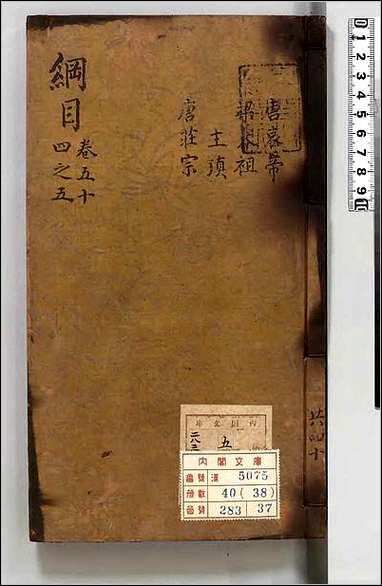 綱目
卷五十
四之五
唐哀帝
梁太祖
主瑱
唐莊宗
共四十
五
內閣文庫
番號 漢 5075
冊數 40 (38)
函號 283 37
0 1 2 3 4 5 6 7 8 9 10